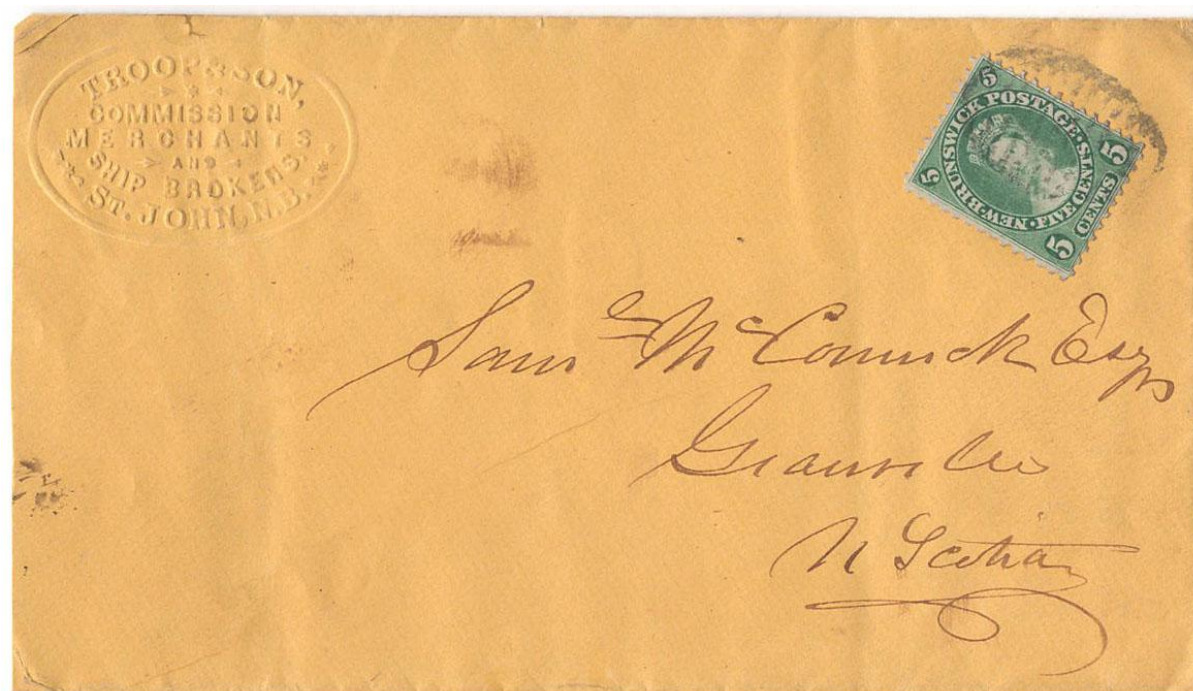 TROOP & SON,
COMMISSION
MERCHANTS
AND
SHIP BROKERS,
ST. JOHN, N.B.
5 5
NEW-BRUNSWICK POSTAGE · FIVE CENTS
5 CENTS 5
Saml McCormick Esqr
Granville
N Scotia